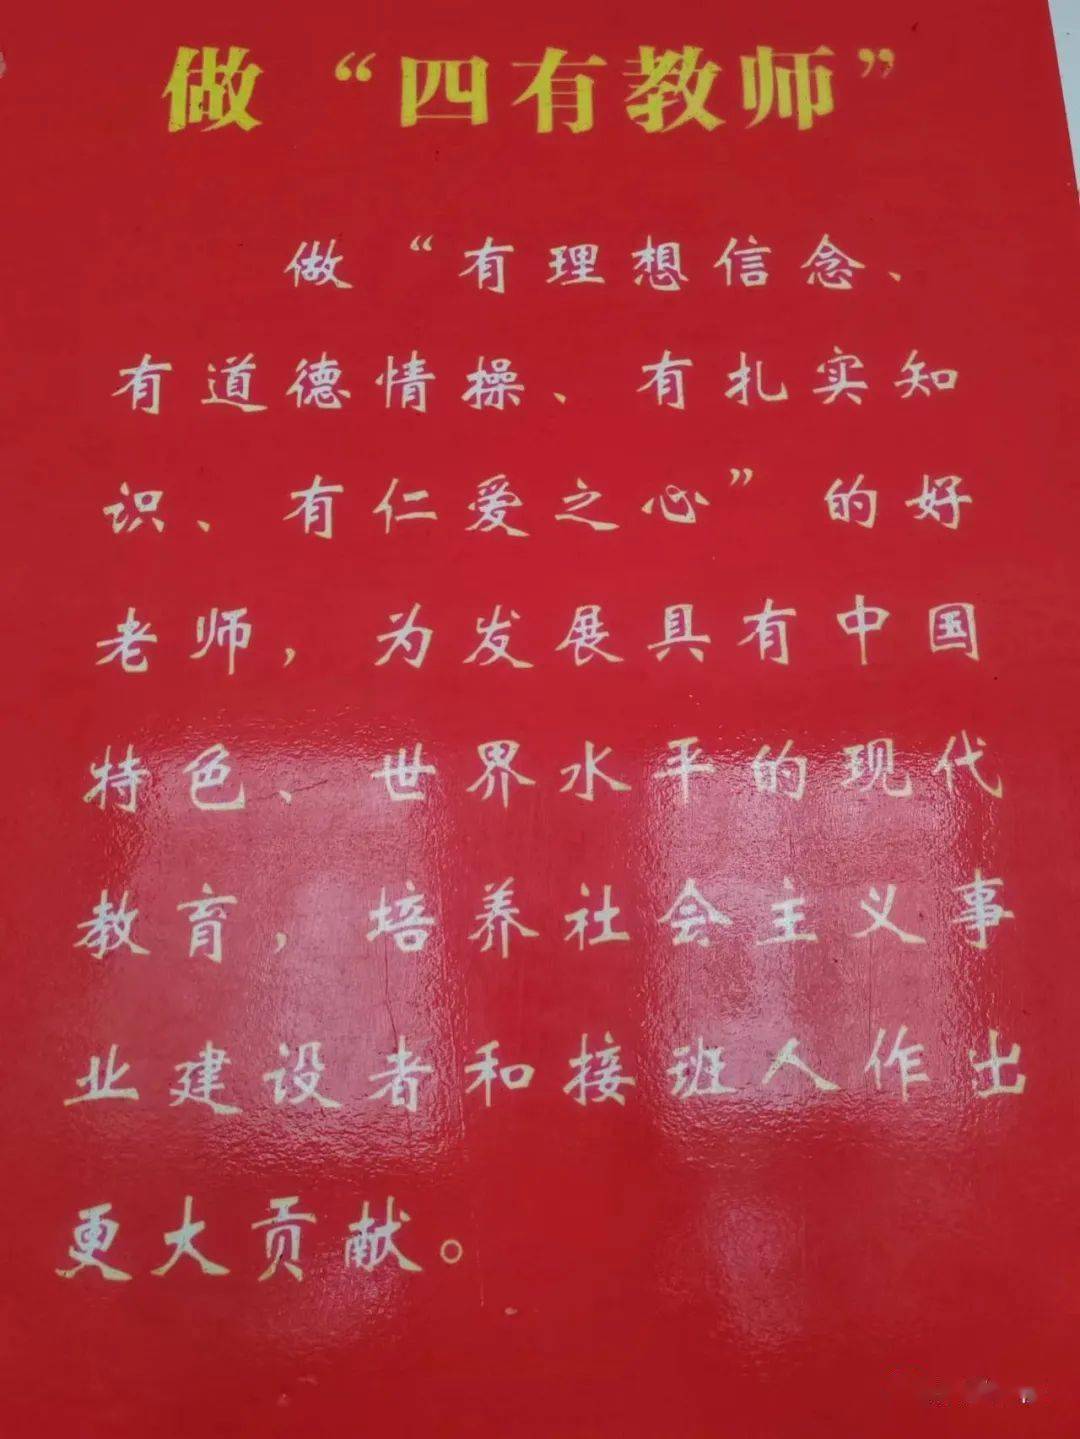 做“四有教师”
做“有理想信念、
有道德情操、有扎实知
识、有仁爱之心”的好
老师，为发展具有中国
特色、世界水平的现代
教育，培养社会主义事
业建设者和接班人作出
更大贡献。